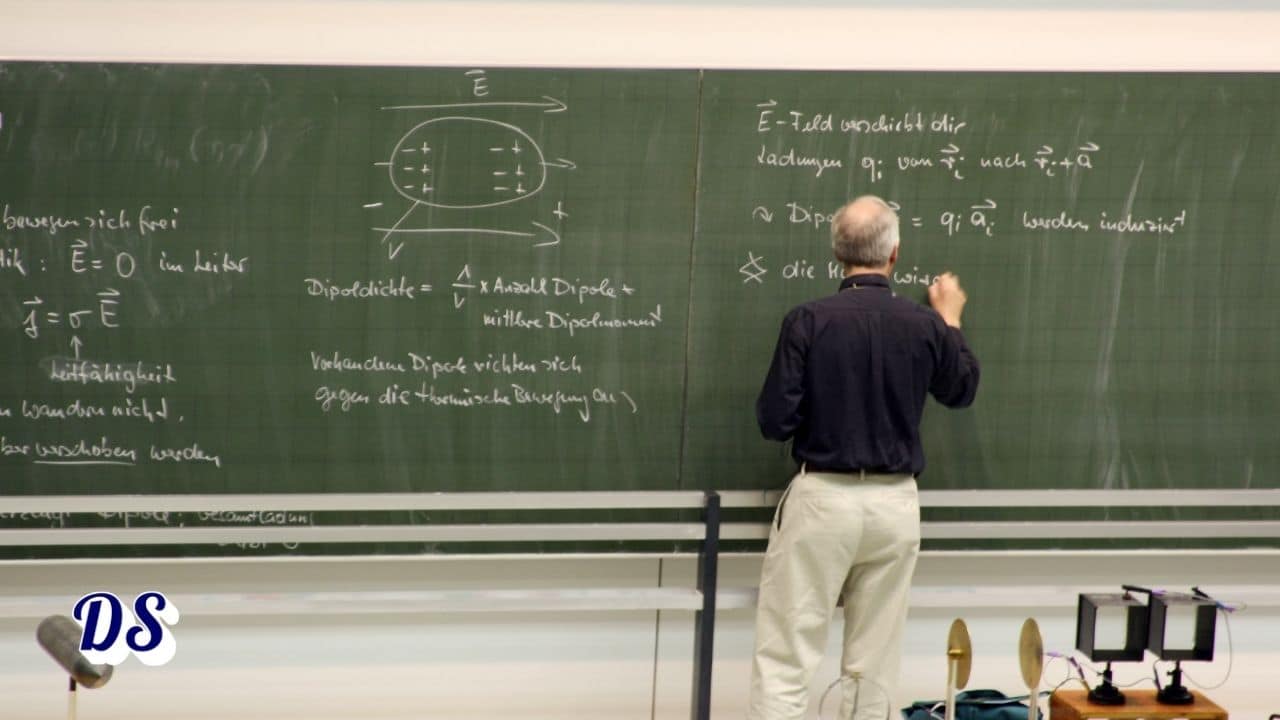 bewegen sich frei
tik : E⃗ = 0 im Leiter
j⃗ = σ E⃗
↑
Leitfähigkeit
n wandern nicht,
ber verschoben werden
Dipole, Gesamtladung
E⃗
- + - +
- + - +
- + - +
- +
V
Dipoldichte = 1/V x Anzahl Dipole x
mittlere Dipolmoment
Vorhandene Dipole richten sich
gegen die thermische Bewegung aus
E⃗-Feld verschiebt die
Ladungen qᵢ von r⃗ᵢ nach r⃗ᵢ + a⃗
Dipo = qᵢ a⃗ᵢ werden induziert
die
DS